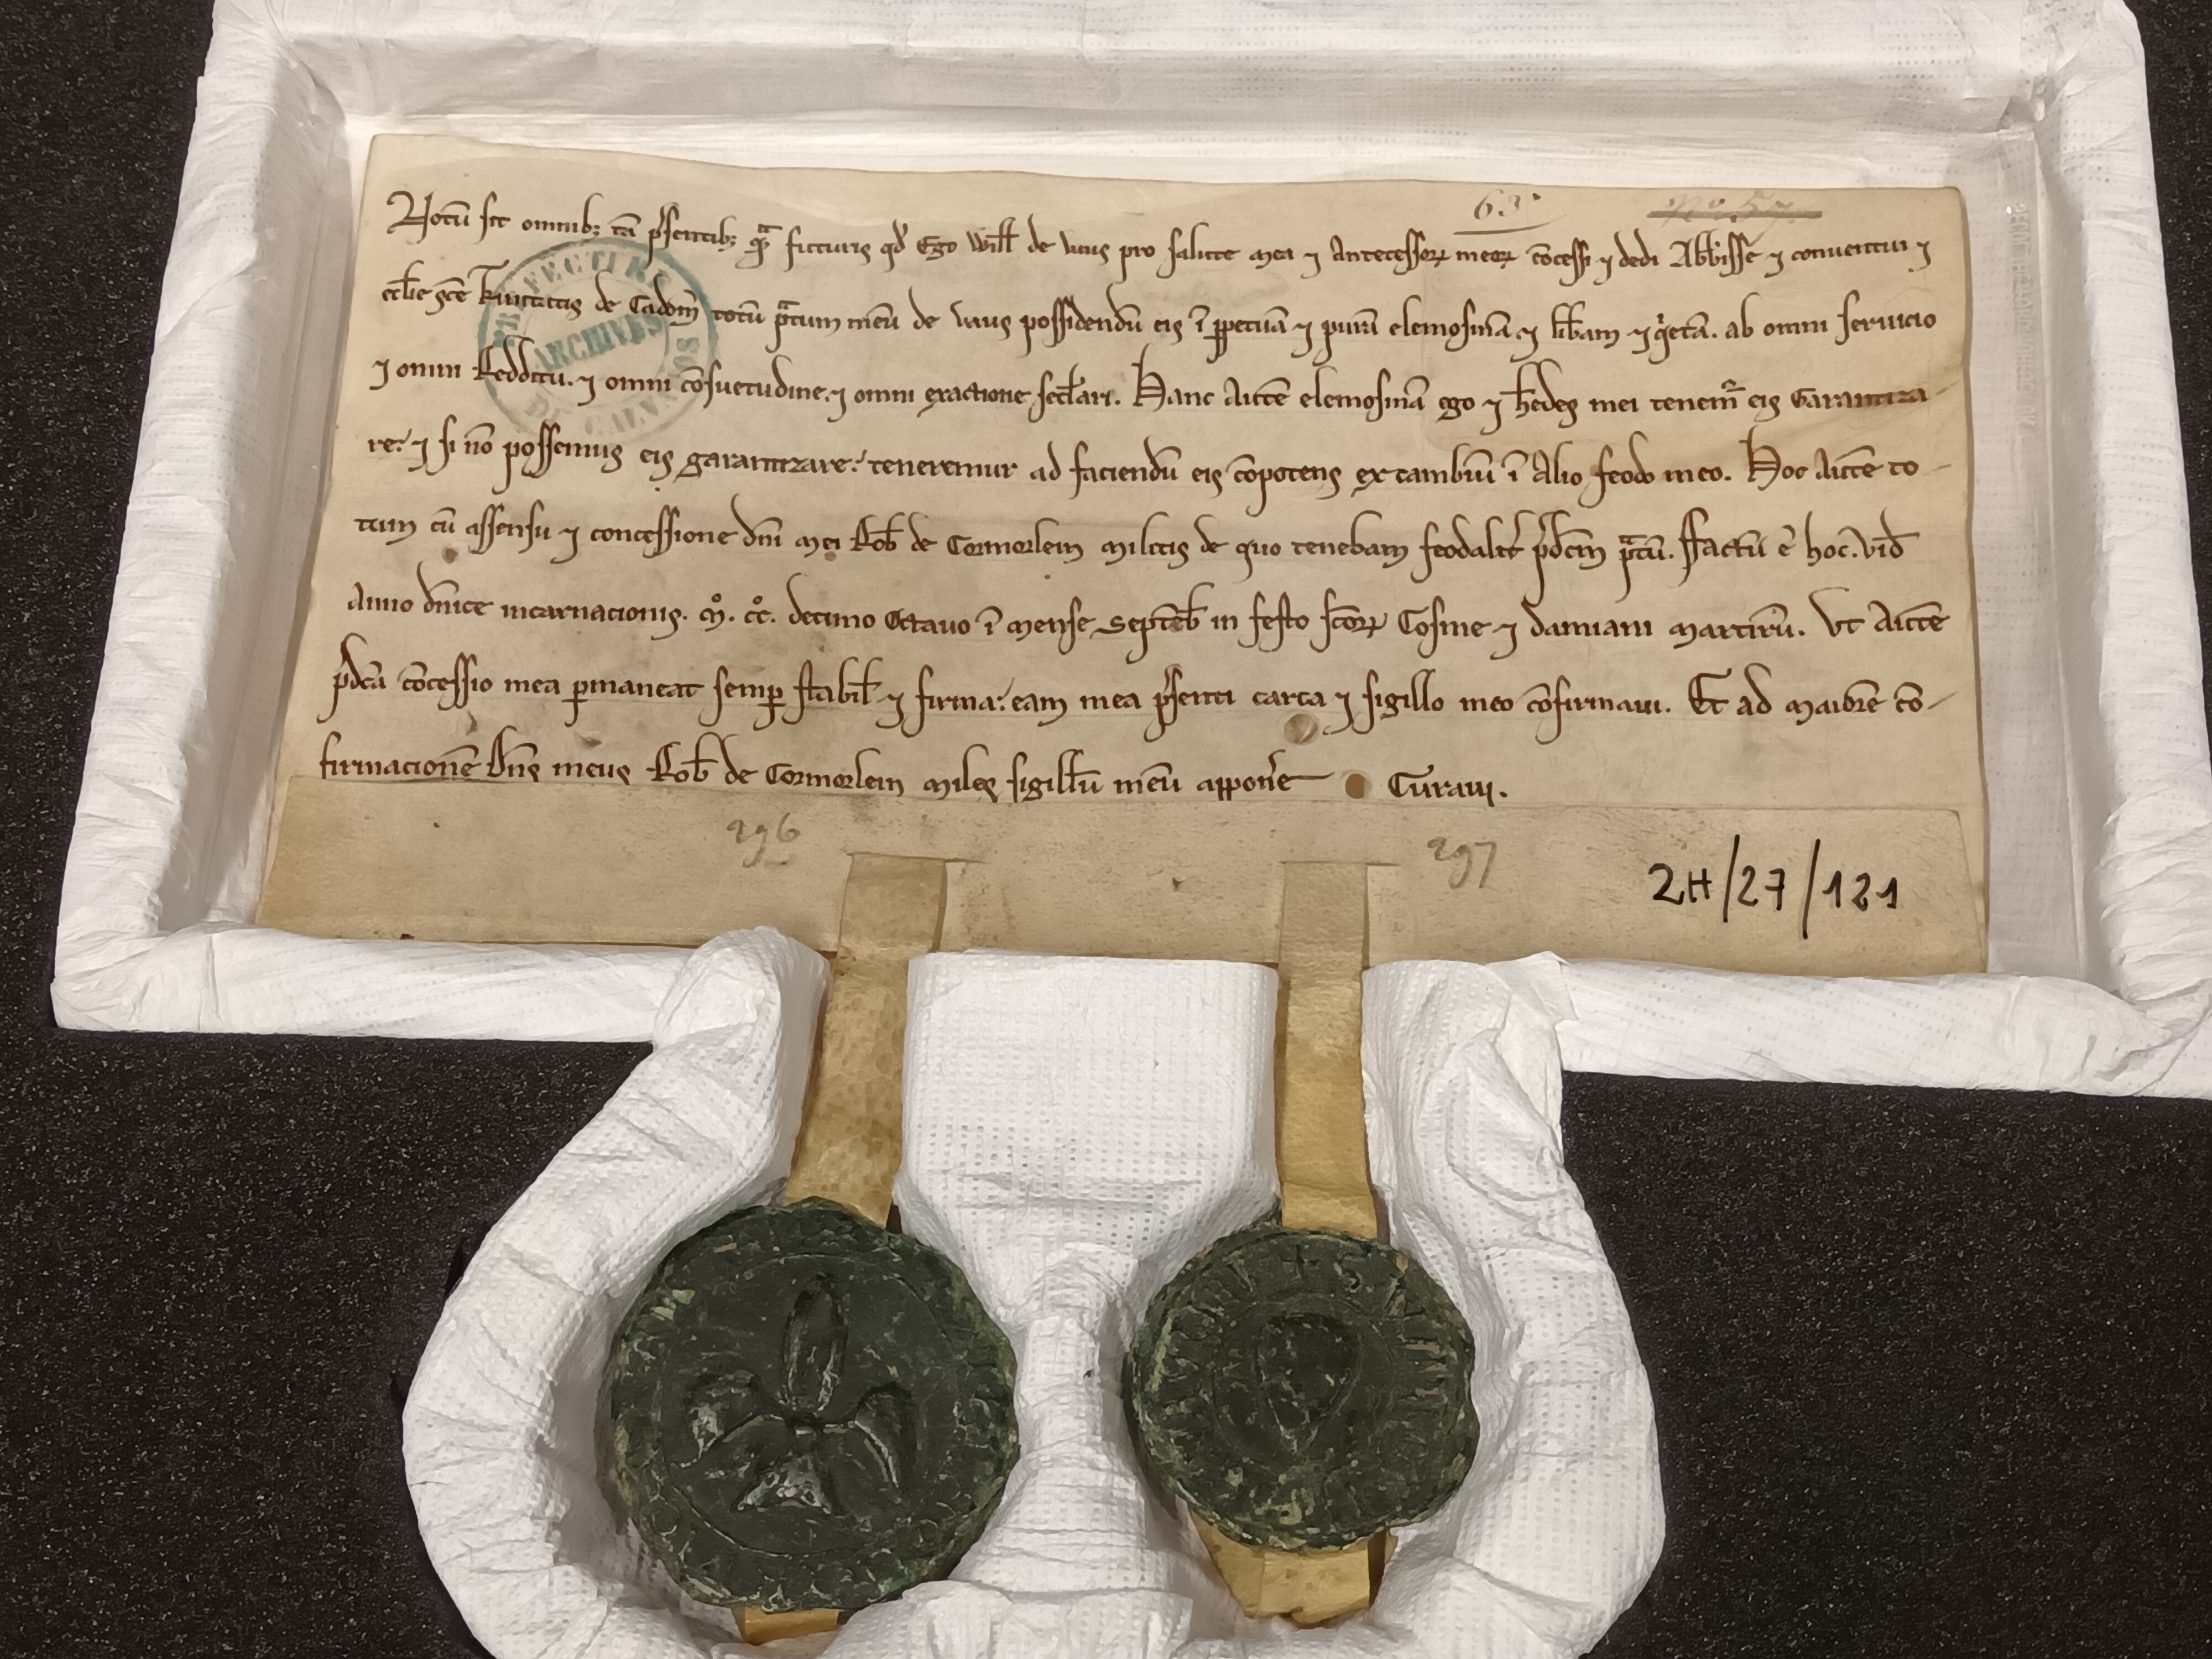 63
Nº 57
Notū sit omnib; tā p̄sentib; q̄ᵃ futuris qđ Ego Will̄ de Vaus pro salute mea ⁊ Antecessoꝝ meoꝝ c̄ocessi ⁊ dedi Abb̄isse ⁊ conventui ⁊
eccl̄ie sc̄e Trinitatis de Cadom̄ totū pᵃtum meū de Vaus possidendū eis ī ꝑpetuā ⁊ purā elemosinā ⁊ lib̄am ⁊ qⁱetā. ab omni servicio
⁊ omni Redditu. ⁊ omni cōsuetudine. ⁊ omni exactione secl̄ari. Hanc Autē elemosinā ego ⁊ h̄edes mei tenem̄ eis Garantiza-
re. ⁊ si nō possemus eis garantizare. teneremur ad faciendū eis cōpotens excambiū ī Alio feodo meo. Hoc Autē to-
tum cū assensu ⁊ concessione dn̄i mei Rob̄ de Cormorlein militis de quo tenebam feodalit̄ p̄dc̄m pᵃtū. ffactū ē hoc. vid̄
Anno dn̄ice incarnacionis. Mº. CCº. decimo Octavo ī mense Septēb̄ in festo sc̄oꝝ Cosme ⁊ damiani martirū. Ut Autē
p̄dc̄a cōcessio mea ꝑmaneat semꝑ stabil̄ ⁊ firma. eam mea p̄senti carta ⁊ sigillo meo cōfirmavi. Et ad maiorē cō-
firmacionē Dn̄s meus Rob̄ de Cormorlein miles sigill̄ū meū appon̄e Curavi.
PREFECTURE
ARCHIVES
DU CALVADOS
296
297
2H/27/121